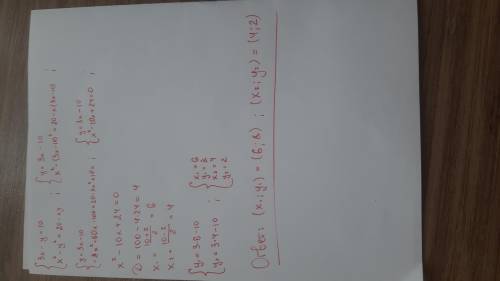 { 3x - y = 10
x² - y² = 20 - xy ; { y = 3x - 10
x² - (3x-10)² = 20 - x(3x-10) ;
{ y = 3x - 10
; { y = 3x - 10
x² - 10x + 24 = 0 ;
x² - 10x + 24 = 0
D = 100 - 4·24 = 4
x₁ = (10+2)/2 = 6
x₂ = (10-2)/2 = 4
{ y₁ = 3·6 - 10
y₂ = 3·4 - 10 ; { x₁ = 6
y₁ = 8
x₂ = 4
y₂ = 2
Ответ: (x₁; y₁) = (6; 8) ; (x₂; y₂) = (4; 2)